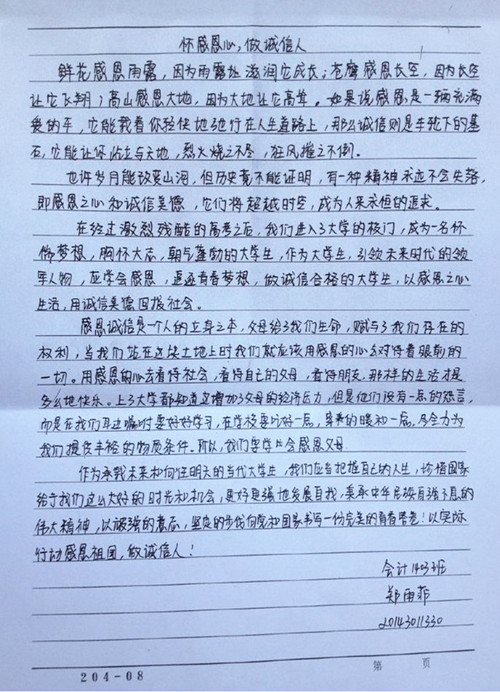 怀感恩心，做诚信人
鲜花感恩雨露，因为雨露滋润它成长；苍鹰感恩长空，因为长空
让它飞翔；高山感恩大地，因为大地让它高耸。如果说感恩是一辆充满
爱的车，它能载着你轻快地驰行在人生道路上，那么诚信则是车轮下的基
石，它能让你屹立与天地，烈火烧之不尽，狂风撼之不倒。
也许岁月能改变山海，但历史竟不能证明，有一种精神永远不会失落，
即感恩之心和诚信美德，它们将超越时空，成为人类永恒的追求。
在经过激烈残酷的高考之后，我们进入了大学的校门，成为一名怀
惴梦想，胸怀大志，朝气蓬勃的大学生，作为大学生，引领未来时代的领
军人物，应学会感恩，追逐青春梦想，做诚信合格的大学生，以感恩之心
生活，用诚信美德回报社会。
感恩诚信是一个人的立身之本，父母给了我们生命，赋与了我们存在的
权利，当我们站在这块土地上时我们就应该用感恩的心去对待着眼前的
一切。用感恩的心去看待社会，看待自己的父母，看待朋友，那样的生活才是
多么地快乐。上了大学都知道这增加了父母的经济压力，但是他们没有一层的怨言，
而是在我们耳边嘱咐要好好学习，在学校要吃好一层，穿的暖和一层，尽全力为
我们提供丰裕的物质条件。所以，我们要学会感恩父母
作为承载未来和向往明天的当代大学生，我们应当把握自己的人生，珍惜国家
给了我们这么大好的时光和机会，更好更强地发展自我，秉承中华民族自强不息的
伟大精神，以顽强的意志，坚定的步伐向党和国家书写一份完美的青春答卷！以实际
行动感恩祖国，做诚信人！
会计1403班
郑雨菲
20143011330
204-08 第 页